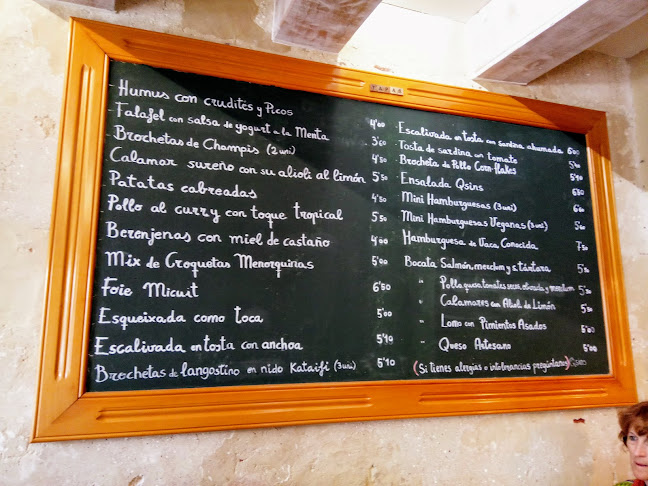 TAPAS
Humus con crudités y Picos 4'00
Falafel con salsa de yogurt a la Menta 3'60
Brochetas de Champis (2 uni) 4'50
Calamar sureño con su alioli al limón 5'50
Patatas cabreadas 4'50
Pollo al curry con toque tropical 5'50
Berenjenas con miel de castaño 4'00
Mix de Croquetas Menorquinas 5'00
Foie Micuit 6'50
Esqueixada como toca 5'00
Escalivada en tosta con anchoa 5'10
Brochetas de langostino en nido Kataifi (3 uni) 5'10
Escalivada en tosta con sardina ahumada 6'00
Tosta de sardina con tomate
Brocheta de Pollo Corn-flakes 5'10
Ensalada Qsins 6'80
Mini Hamburguesas (3 uni)
Mini Hamburguesas Veganas (3 uni) 5'60
Hamburguesa de Vaca Conocida 7'50
Bocata Salmón, mesclum y s. tártara 5'50
" Pollo, queso, tomates secos, olivada y mesclum 5'50
" Calamares con Alioli de Limón 5'50
" Lomo con Pimientos Asados 5'00
" Queso Artesano 5'00
(Si tienes alergias o intolerancias pregúntanos)